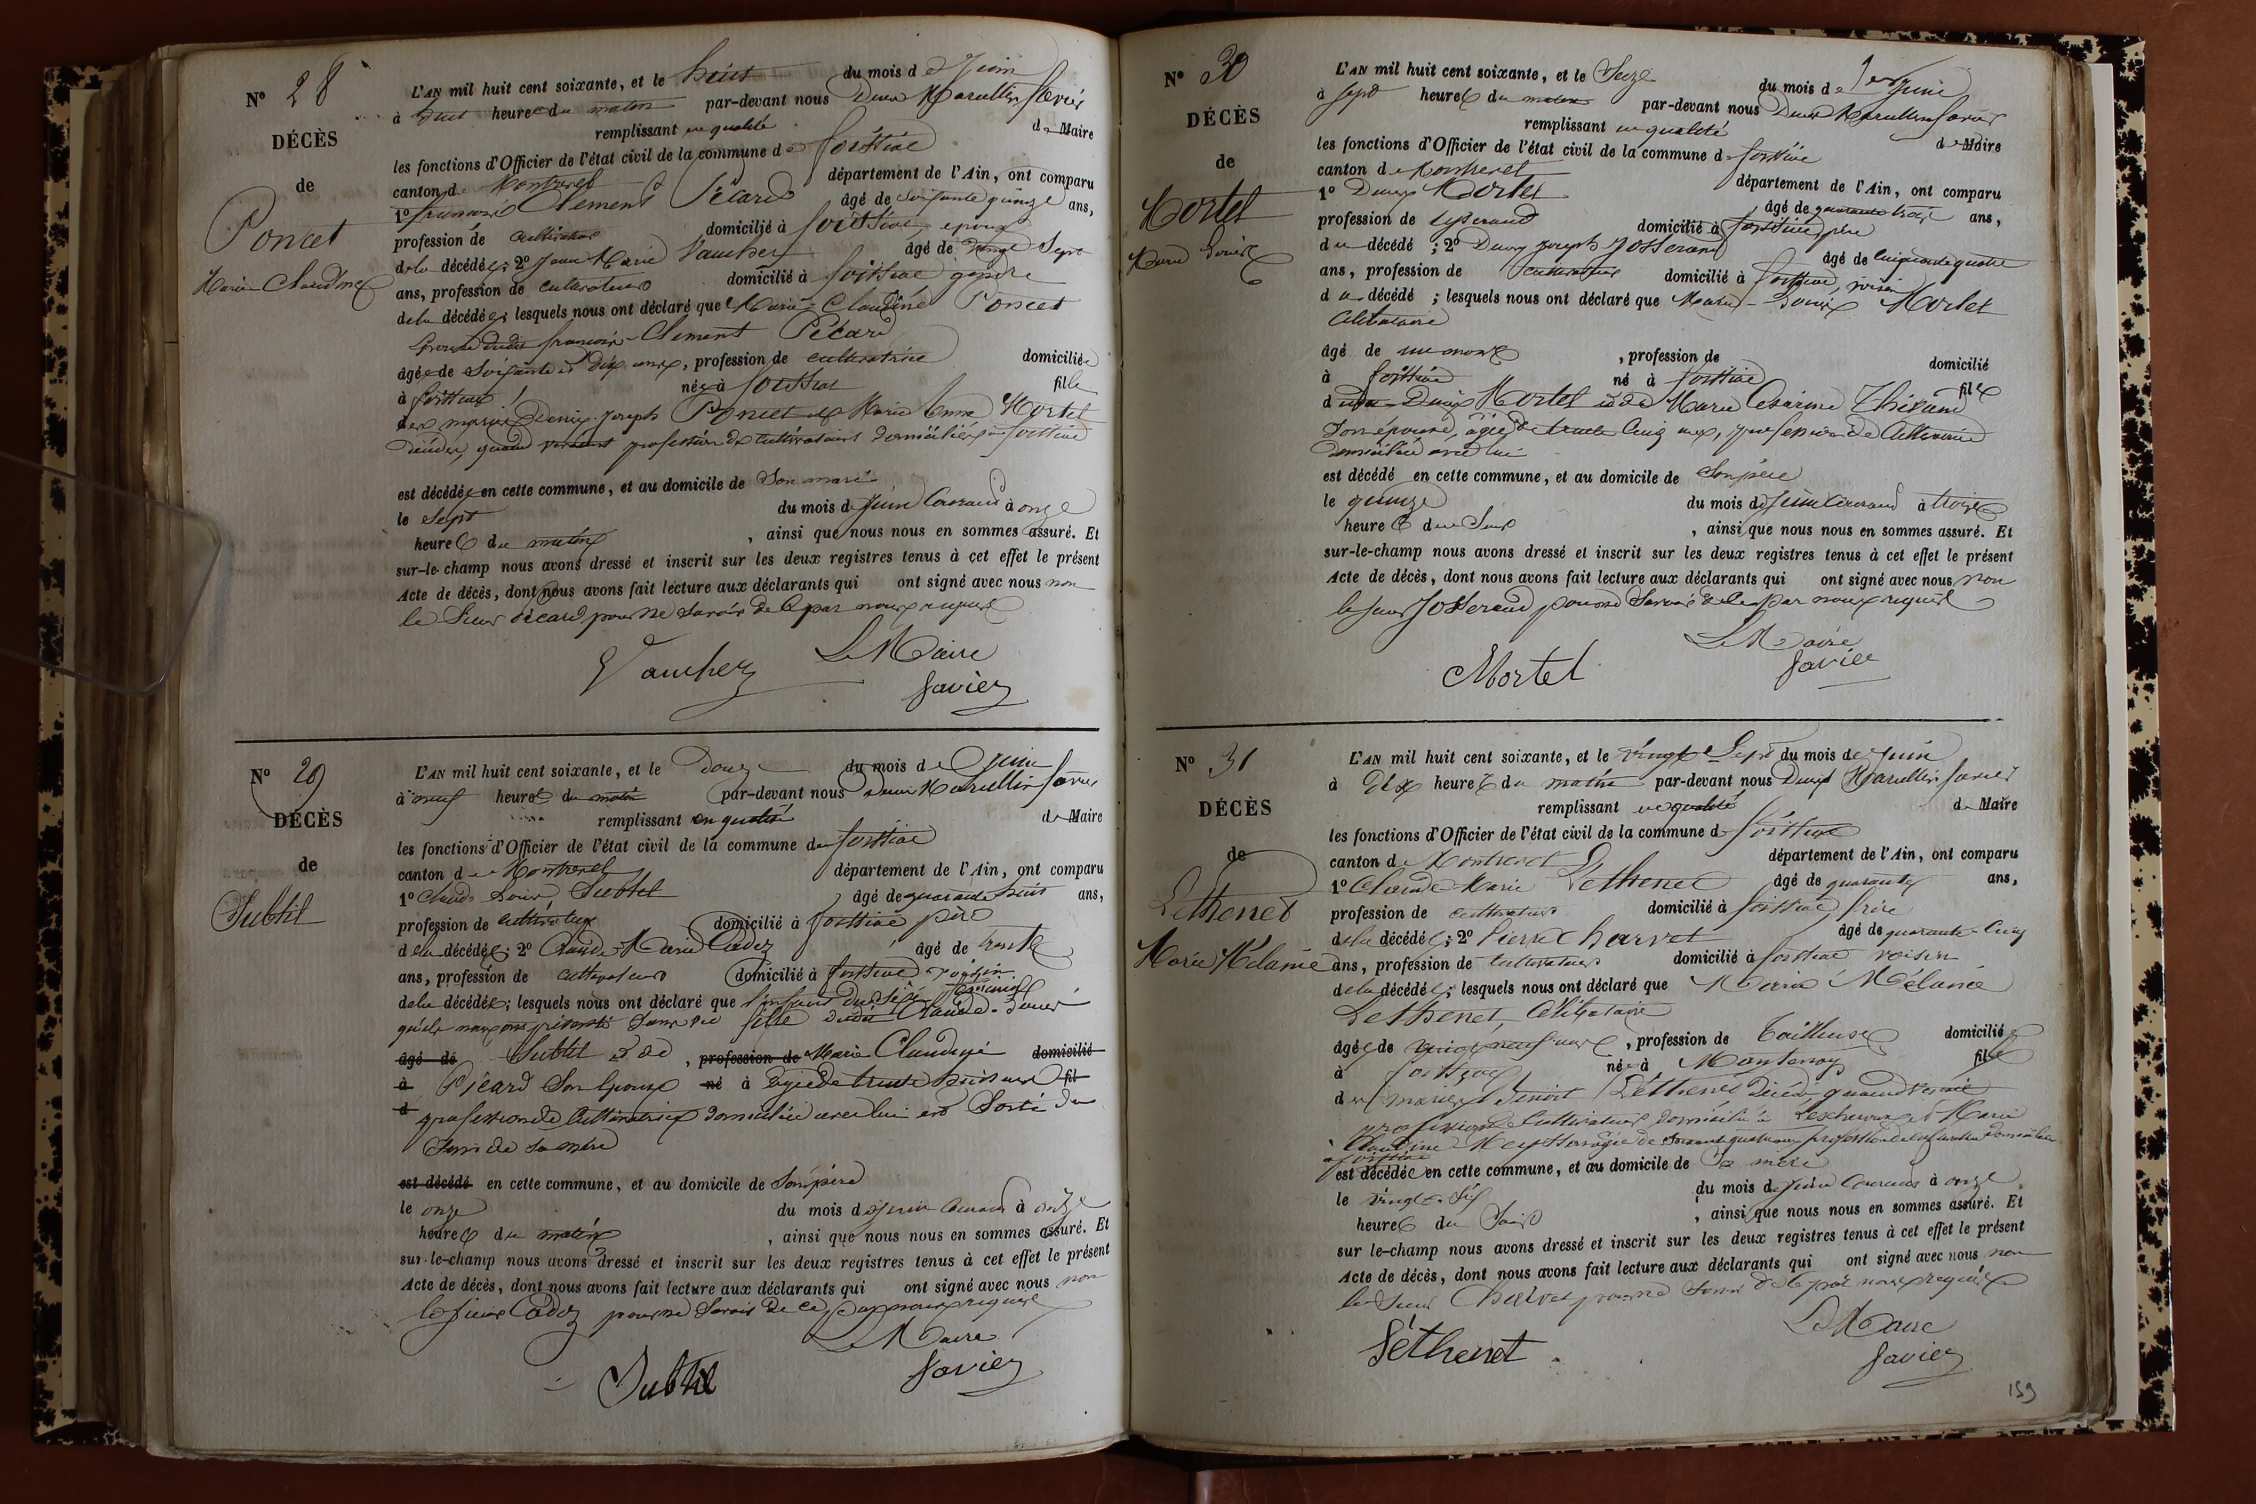 N° 28
DÉCÈS
de
Poncet
Marie Claudine
L'AN mil huit cent soixante, et le huit du mois de Juin
à huit heures du matin par-devant nous Denis Marcellin Favier
remplissant en qualité de Maire
les fonctions d'Officier de l'état civil de la commune de foissiat
canton de Montrevel département de l'Ain, ont comparu
1° françois Clément Pécard âgé de soixante quinze ans,
profession de cultivateur domicilié à foissiat époux
de la décédée; 2° Jean Marie Vaucher âgé de Sept
ans, profession de cultivateur domicilié à foissiat gendre
de la décédée; lesquels nous ont déclaré que Marie Claudine Poncet
épouse dudit françois Clément Pécard
âgée de soixante et dix ans, profession de cultivatrice domiciliée
à foissiat née à foissiat fille
des mariés Denis Joseph Poncet et Marie Anne Mortel
décédés, quand vivaient profession de cultivateurs domiciliés à foissiat
est décédée en cette commune, et au domicile de Son mari
le Sept du mois de Juin Courant à onze
heures du matin, ainsi que nous nous en sommes assuré. Et
sur-le-champ nous avons dressé et inscrit sur les deux registres tenus à cet effet le présent
Acte de décès, dont nous avons fait lecture aux déclarants qui ont signé avec nous non
le Sieur Pécard pour ne savoir de ce par nous requis
Vaucher Le Maire
Favier
N° 29
DÉCÈS
de
Subtil
L'AN mil huit cent soixante, et le douze du mois de Juin
à neuf heures du matin par-devant nous Denis Marcellin Favier
remplissant en qualité de Maire
les fonctions d'Officier de l'état civil de la commune de foissiat
canton de Montrevel département de l'Ain, ont comparu
1° Claude Denis Subtil âgé de quarante huit ans,
profession de cultivateur domicilié à foissiat père
de la décédée; 2° Claude Marie Cadoz âgé de trente
ans, profession de cultivateur domicilié à foissiat voisin
de la décédée; lesquels nous ont déclaré que l'enfant du sexe féminin
qu'ils nous ont présenté sans vie fille dudit Claude Denis
âgé de Subtil et de, profession de Marie Claudine domicilié
à Pécard Son épouse né à âgée de trente huit ans fil
d profession de cultivatrice domiciliée avec lui est sorti du
sein de sa mère
est décédé en cette commune, et au domicile de Son père
le onze du mois de Juin courant à onze
heures du matin, ainsi que nous nous en sommes assuré. Et
sur-le-champ nous avons dressé et inscrit sur les deux registres tenus à cet effet le présent
Acte de décès, dont nous avons fait lecture aux déclarants qui ont signé avec nous non
le sieur Cadoz pour ne savoir de ce par nous requis
Le Maire
Subtil Favier
N° 30
DÉCÈS
de
Mortel
Marie Louise
L'AN mil huit cent soixante, et le Seize du mois de Juin
à sept heures du matin par-devant nous Denis Marcellin Favier
remplissant en qualité de Maire
les fonctions d'Officier de l'état civil de la commune de foissiat
canton de Montrevel département de l'Ain, ont comparu
1° Denis Mortel âgé de quarante trois ans,
profession de tisserand domicilié à foissiat père
du décédé; 2° Denis Joseph Josserand âgé de cinquante quatre
ans, profession de cultivateur domicilié à foissiat, voisin
du décédé; lesquels nous ont déclaré que Marie Louise Mortel
célibataire
âgé de un mois, profession de domicilié
à foissiat né à foissiat fille
de Denis Mortel et de Marie Césarine Thévand
son épouse, âgée de trente cinq ans, profession de cultivatrice
domiciliée avec lui
est décédé en cette commune, et au domicile de Son père
le quinze du mois de Juin Courant à trois
heures du Soir, ainsi que nous nous en sommes assuré. Et
sur-le-champ nous avons dressé et inscrit sur les deux registres tenus à cet effet le présent
Acte de décès, dont nous avons fait lecture aux déclarants qui ont signé avec nous non
le sieur Josserand pour ne savoir de ce par nous requis
Le Maire
Mortel Favier
N° 31
DÉCÈS
de
Léthenet
Marie Mélanie
L'AN mil huit cent soixante, et le vingt Sept du mois de Juin
à dix heures du matin par-devant nous Denis Marcellin Favier
remplissant en qualité de Maire
les fonctions d'Officier de l'état civil de la commune de foissiat
canton de Montrevel département de l'Ain, ont comparu
1° Claude Marie Léthenet âgé de quarante ans,
profession de cultivateur domicilié à foissiat, frère
de la décédée; 2° Pierre Charvet âgé de quarante Cinq
ans, profession de cultivateur domicilié à foissiat voisin
de la décédée; lesquels nous ont déclaré que Marie Mélanie
Léthenet, célibataire
âgée de vingt neuf ans, profession de tailleuse domiciliée
à foissiat née à Mantenay fille
des mariés Benoit Léthenet décédé quand vivait
profession de cultivateur domicilié à Lescheroux et Marie
Claudine âgée de soixante quatre ans profession de cultivatrice domiciliée
à foissiat
est décédée en cette commune, et au domicile de Sa mère
le vingt Six du mois de Juin Courant à onze
heures du Soir, ainsi que nous nous en sommes assuré. Et
sur le-champ nous avons dressé et inscrit sur les deux registres tenus à cet effet le présent
Acte de décès, dont nous avons fait lecture aux déclarants qui ont signé avec nous non
le Sieur Charvet pour ne savoir de ce par nous requis
Le Maire
Léthenet Favier
159